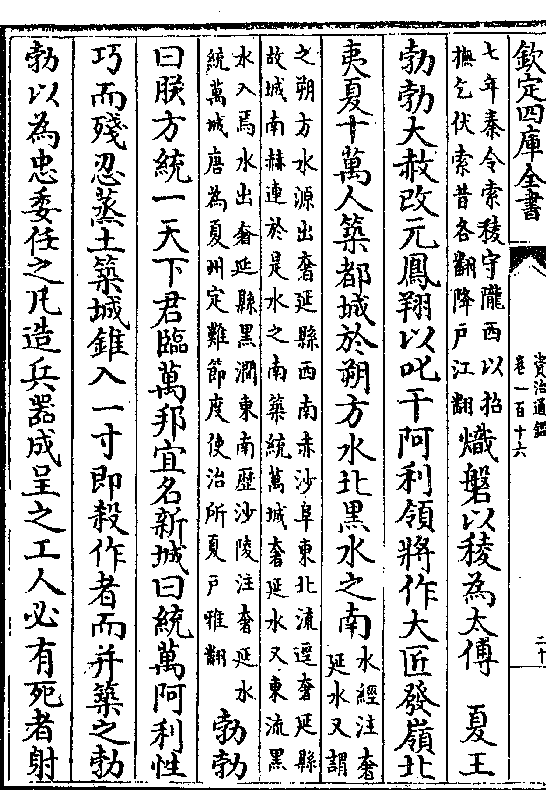 欽定四庫全書
資治通鑑
卷一百十六
二十
七年秦令索稜守隴西以招
撫乞伏索昔各翻降户江翻
熾磐以稜為太傅　夏王
勃勃大赦改元鳳翔以叱干阿利領將作大匠發嶺北
夷夏十萬人築都城於朔方水北黑水之南
水經注奢
延水又謂
之朔方水源出奢延縣西南赤沙阜東北流逕奢延縣
故城南赫連於是水之南築統萬城奢延水又東流黑
水入焉水出奢延縣黑澗東南歷沙陵注奢延水
統萬城唐為夏州定難節度使治所夏户雅翻
勃勃
曰朕方統一天下君臨萬邦宜名新城曰統萬阿利性
巧而殘忍蒸土築城錐入一寸即殺作者而并築之勃
勃以為忠委任之凡造兵器成呈之工人必有死者射